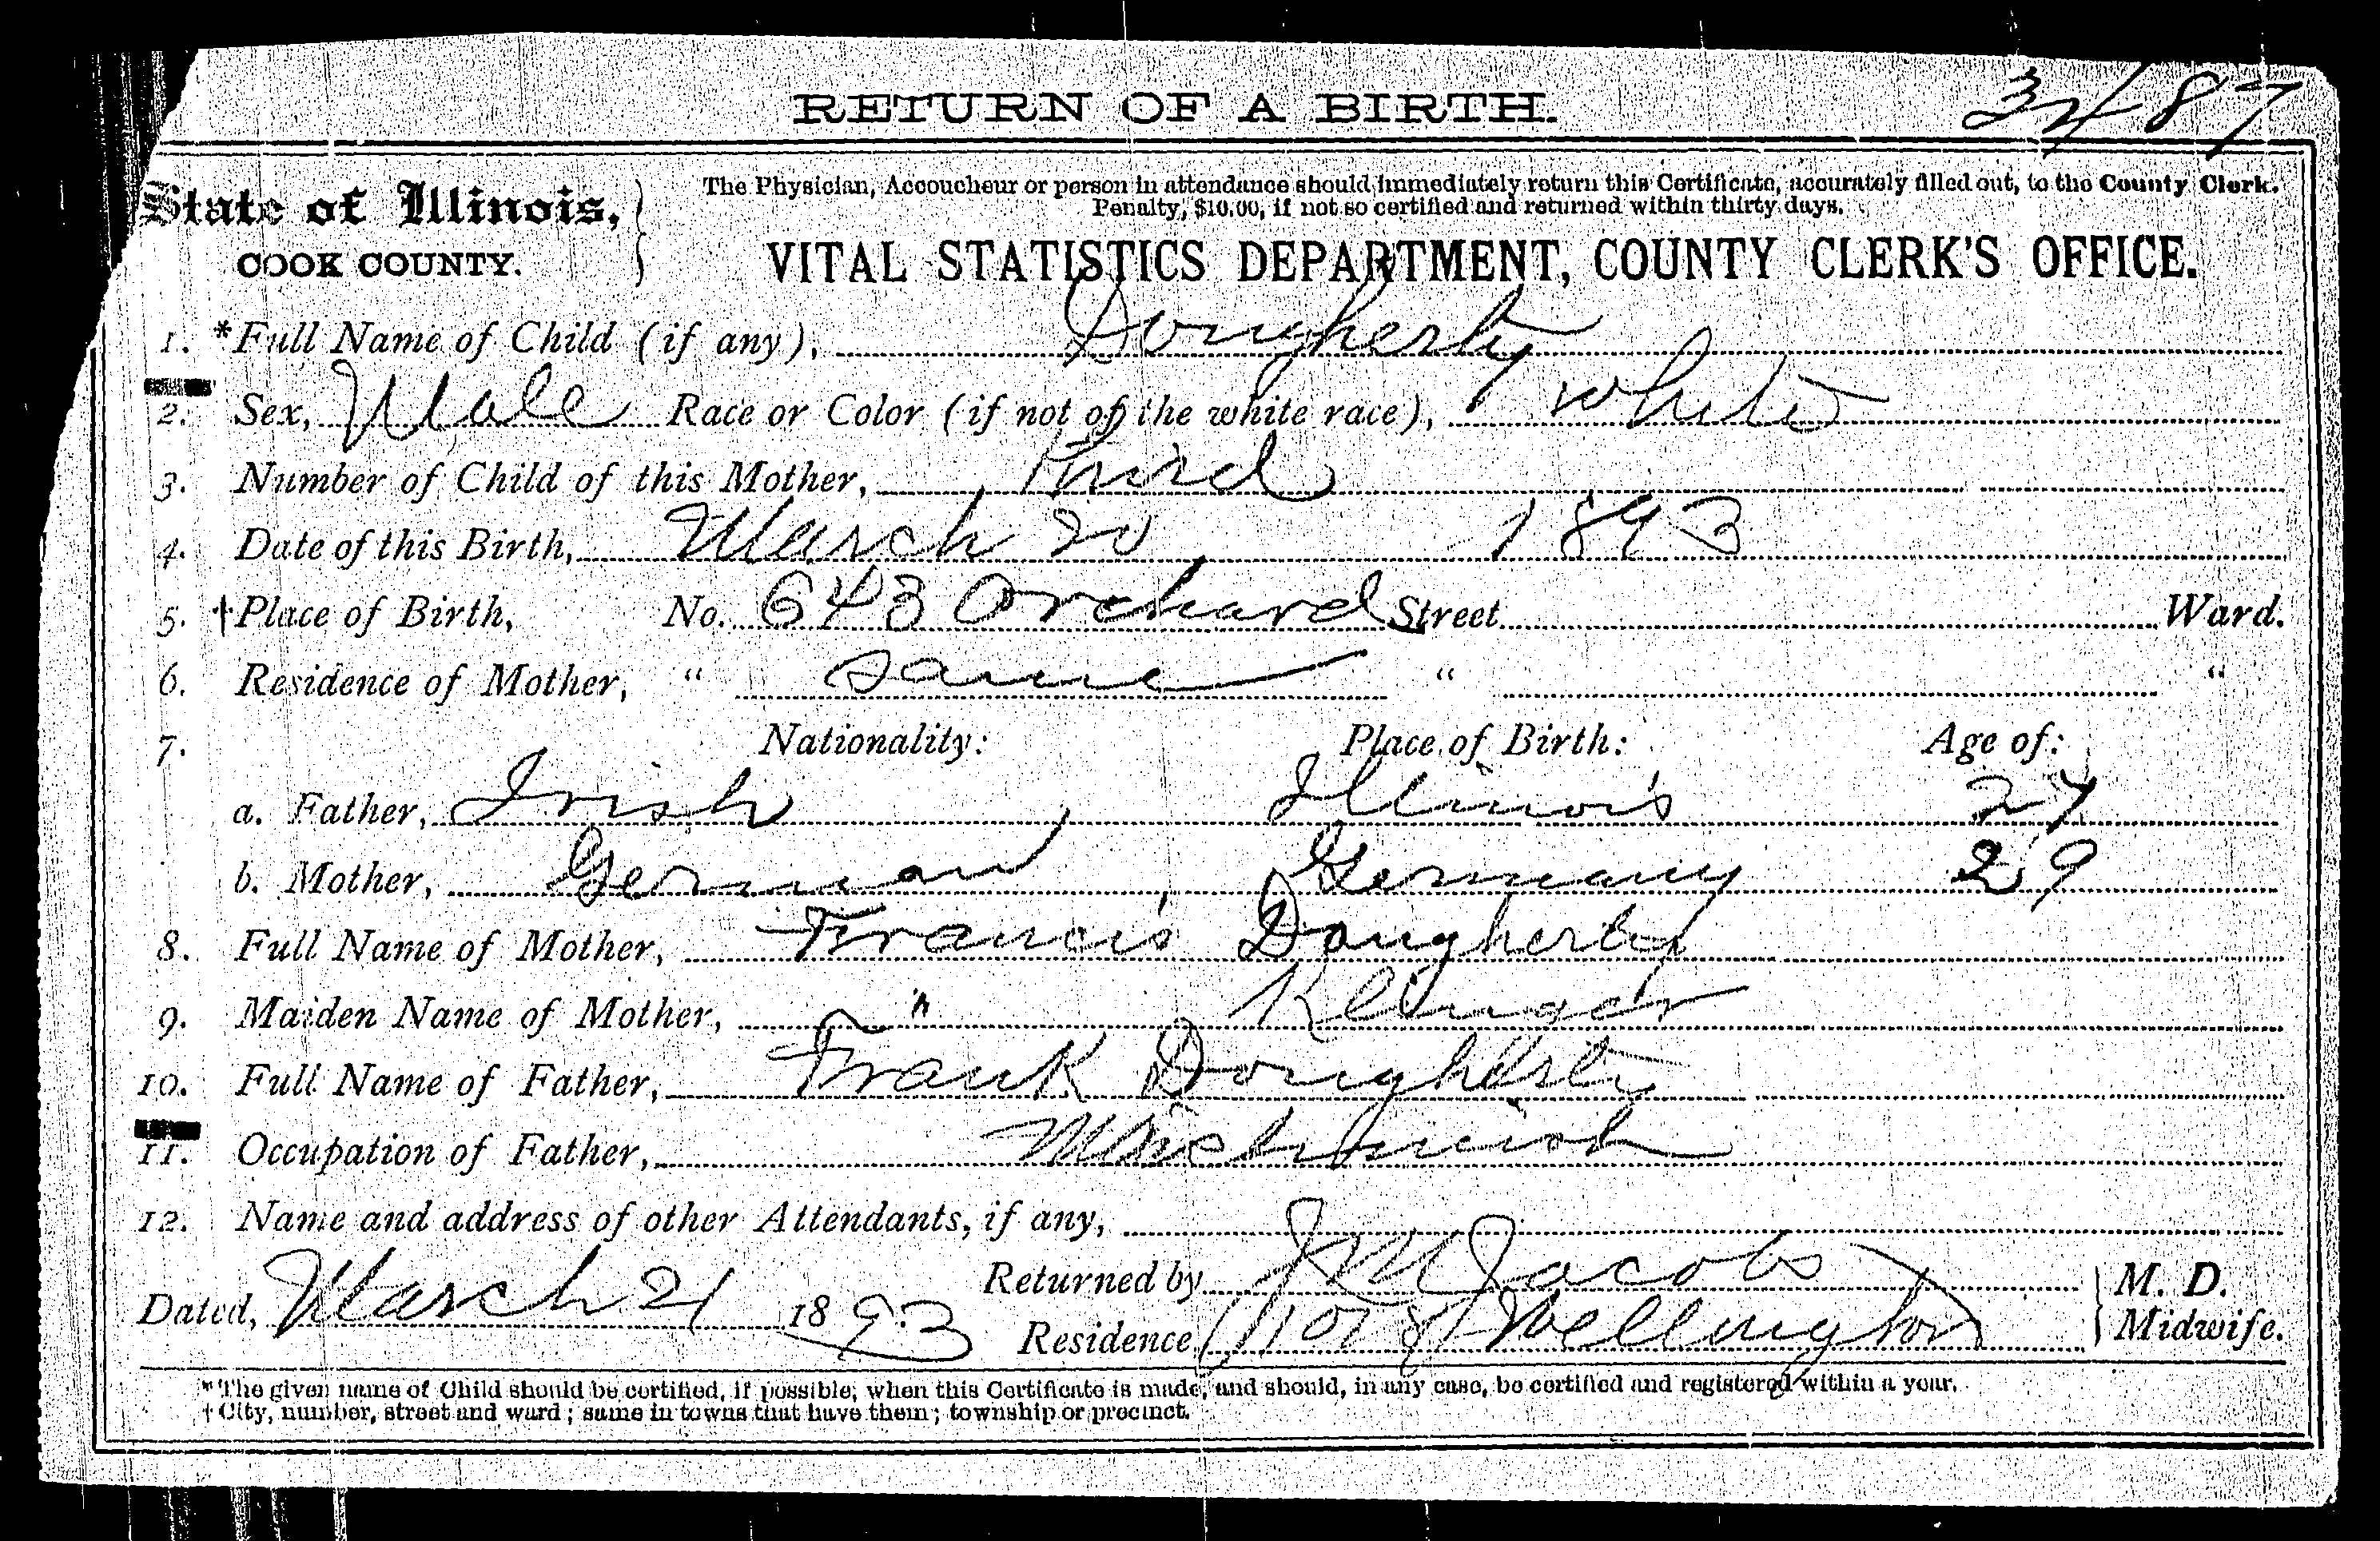 3487
RETURN OF A BIRTH.
State of Illinois,
COOK COUNTY.
The Physician, Accoucheur or person in attendance should immediately return this Certificate, accurately filled out, to the County Clerk.
Penalty, $10.00, if not so certified and returned within thirty days.
VITAL STATISTICS DEPARTMENT, COUNTY CLERK'S OFFICE.
1. *Full Name of Child (if any), Dougherty
2. Sex, Male Race or Color (if not of the white race), White
3. Number of Child of this Mother, Third
4. Date of this Birth, March 20 1893
5. †Place of Birth, No. 643 Orchard Street Ward.
6. Residence of Mother, " same " "
7. Nationality: Place of Birth: Age of:
a. Father, Irish Illinois 27
b. Mother, German Germany 29
8. Full Name of Mother, Francis Dougherty
9. Maiden Name of Mother, "
10. Full Name of Father, Frank Dougherty
11. Occupation of Father,
12. Name and address of other Attendants, if any,
Returned by J M Jacobs M. D.
Dated, March 21 1893 Residence, Wellington Midwife.
* The given name of Child should be certified, if possible, when this Certificate is made, and should, in any case, be certified and registered within a year.
† City, number, street and ward; same in towns that have them; township or precinct.